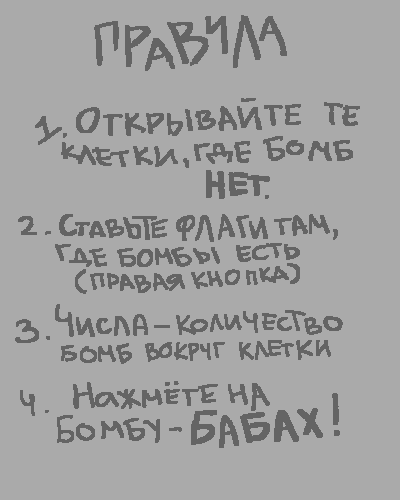 ПРАВИЛА
1. ОТКРЫВАЙТЕ ТЕ
КЛЕТКИ, ГДЕ БОМБ
НЕТ.
2. СТАВЬТЕ ФЛАГИ ТАМ,
ГДЕ БОМБЫ ЕСТЬ
(ПРАВАЯ КНОПКА)
3. ЧИСЛА - КОЛИЧЕСТВО
БОМБ ВОКРУГ КЛЕТКИ
4. НАЖМЁТЕ НА
БОМБУ - БАБАХ!